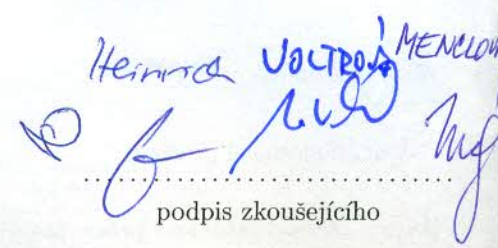 Heinrich VOLTROVÁ MENCLOV
podpis zkoušejícího